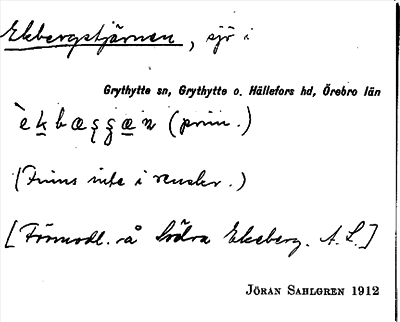 Ekbergstjärnen, sjö i
Grythytte sn, Grythytte o. Hällefors hd, Örebro län
(prim.)
(Finns inte i renskr.)
[Förmodl. på Södra Ekeberg. A. L.]
JÖRAN SAHLGREN 1912